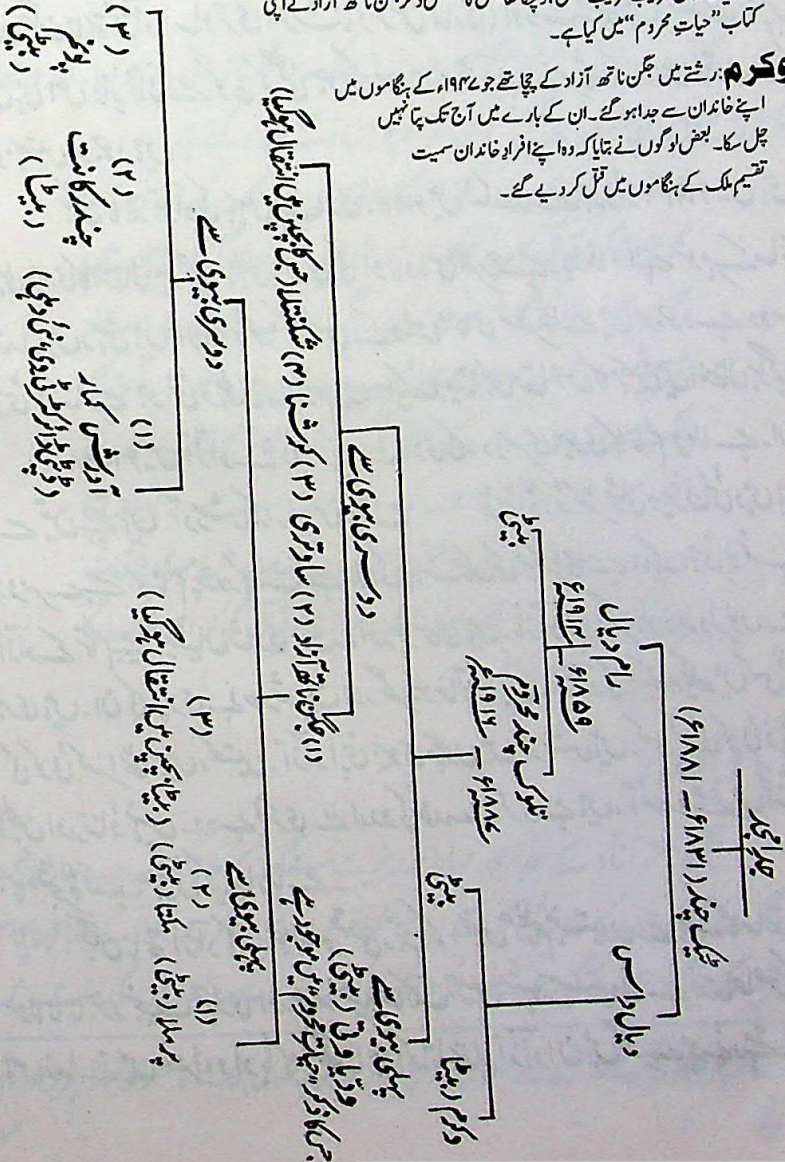 کتاب “حیاتِ محروم” میں کیا ہے۔
وکرم: رشتے میں جگن ناتھ آزاد کے چچا تھے جو ۱۹۴۷ء کے ہنگاموں میں
اپنے خاندان سے جدا ہوگئے۔ ان کے بارے میں آج تک پتا نہیں
چل سکا۔ بعض لوگوں نے بتایا کہ وہ اپنے افرادِ خاندان سمیت
تقسیم ملک کے ہنگاموں میں قتل کر دیے گئے۔
جدِ امجد
ٹیک چند (۱۸۳۱ء - ۱۸۸۱ء)
دیال داس
رام دیال
۱۸۵۹ء - ۱۹۱۳ء
وکرم (بیٹا)
بیٹی
تلوک چند محروم
۱۸۸۷ء - ۱۹۶۶ء
بیٹی
پہلی بیوی سے
ودّیا وتی (بیٹی)
جس کا ذکر “حیاتِ محروم” میں موجود ہے
دوسری بیوی سے
(۱) جگن ناتھ آزاد (۲) ساوتری (۳) کرشنا (۴) شکنتلا (جس کا بچپن میں انتقال ہوگیا)
پہلی بیوی سے
(۱)
پرملا (بیٹی)
(۲)
مکتا (بیٹی)
(۳)
(بیٹا بچپن میں انتقال ہوگیا)
دوسری بیوی سے
(۱)
آدرش کمار
(ڈپٹی ڈائرکٹر ٹی وی نئی دہلی)
(۲)
چندر کانت
(بیٹا)
(۳)
پونم
(بیٹی)